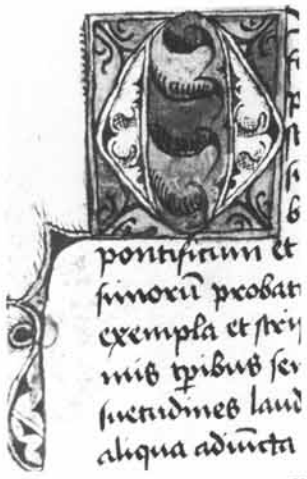 O
pontificum et
simorū probat
exempla et scrip
mis tp̄ibus ser
suetudines laud
aliqua adiūcta